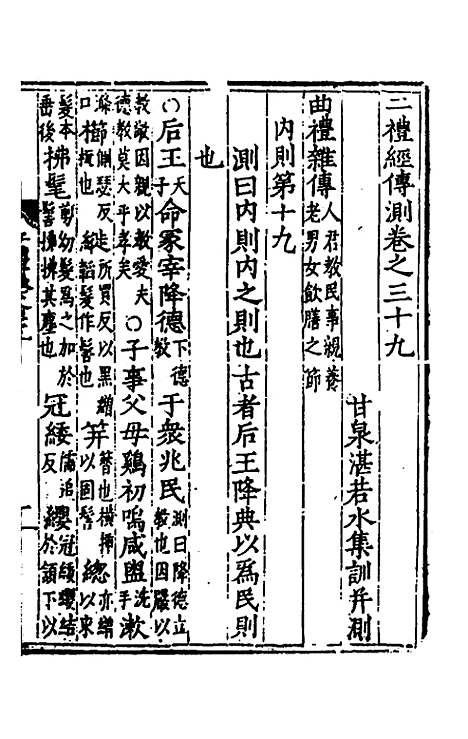 二禮經傳測卷之三十九
甘泉湛若水集訓并測
曲禮雜傳人君教民事親養老男女飲膳之節
內則第十九
測曰內則內之則也古者后王降典以爲民則
也
○后王天子命冢宰降德下德教于衆兆民測曰降德立教也因嚴以
教敬因親以教愛夫德教莫大乎孝矣○子事父母鷄初鳴咸盥洗手漱
滌口櫛梳也縰韜髮作髻也笄簪也橫揷以固髻總以束
髮本垂後拂髦冠緌纓冠纓結於頷下以